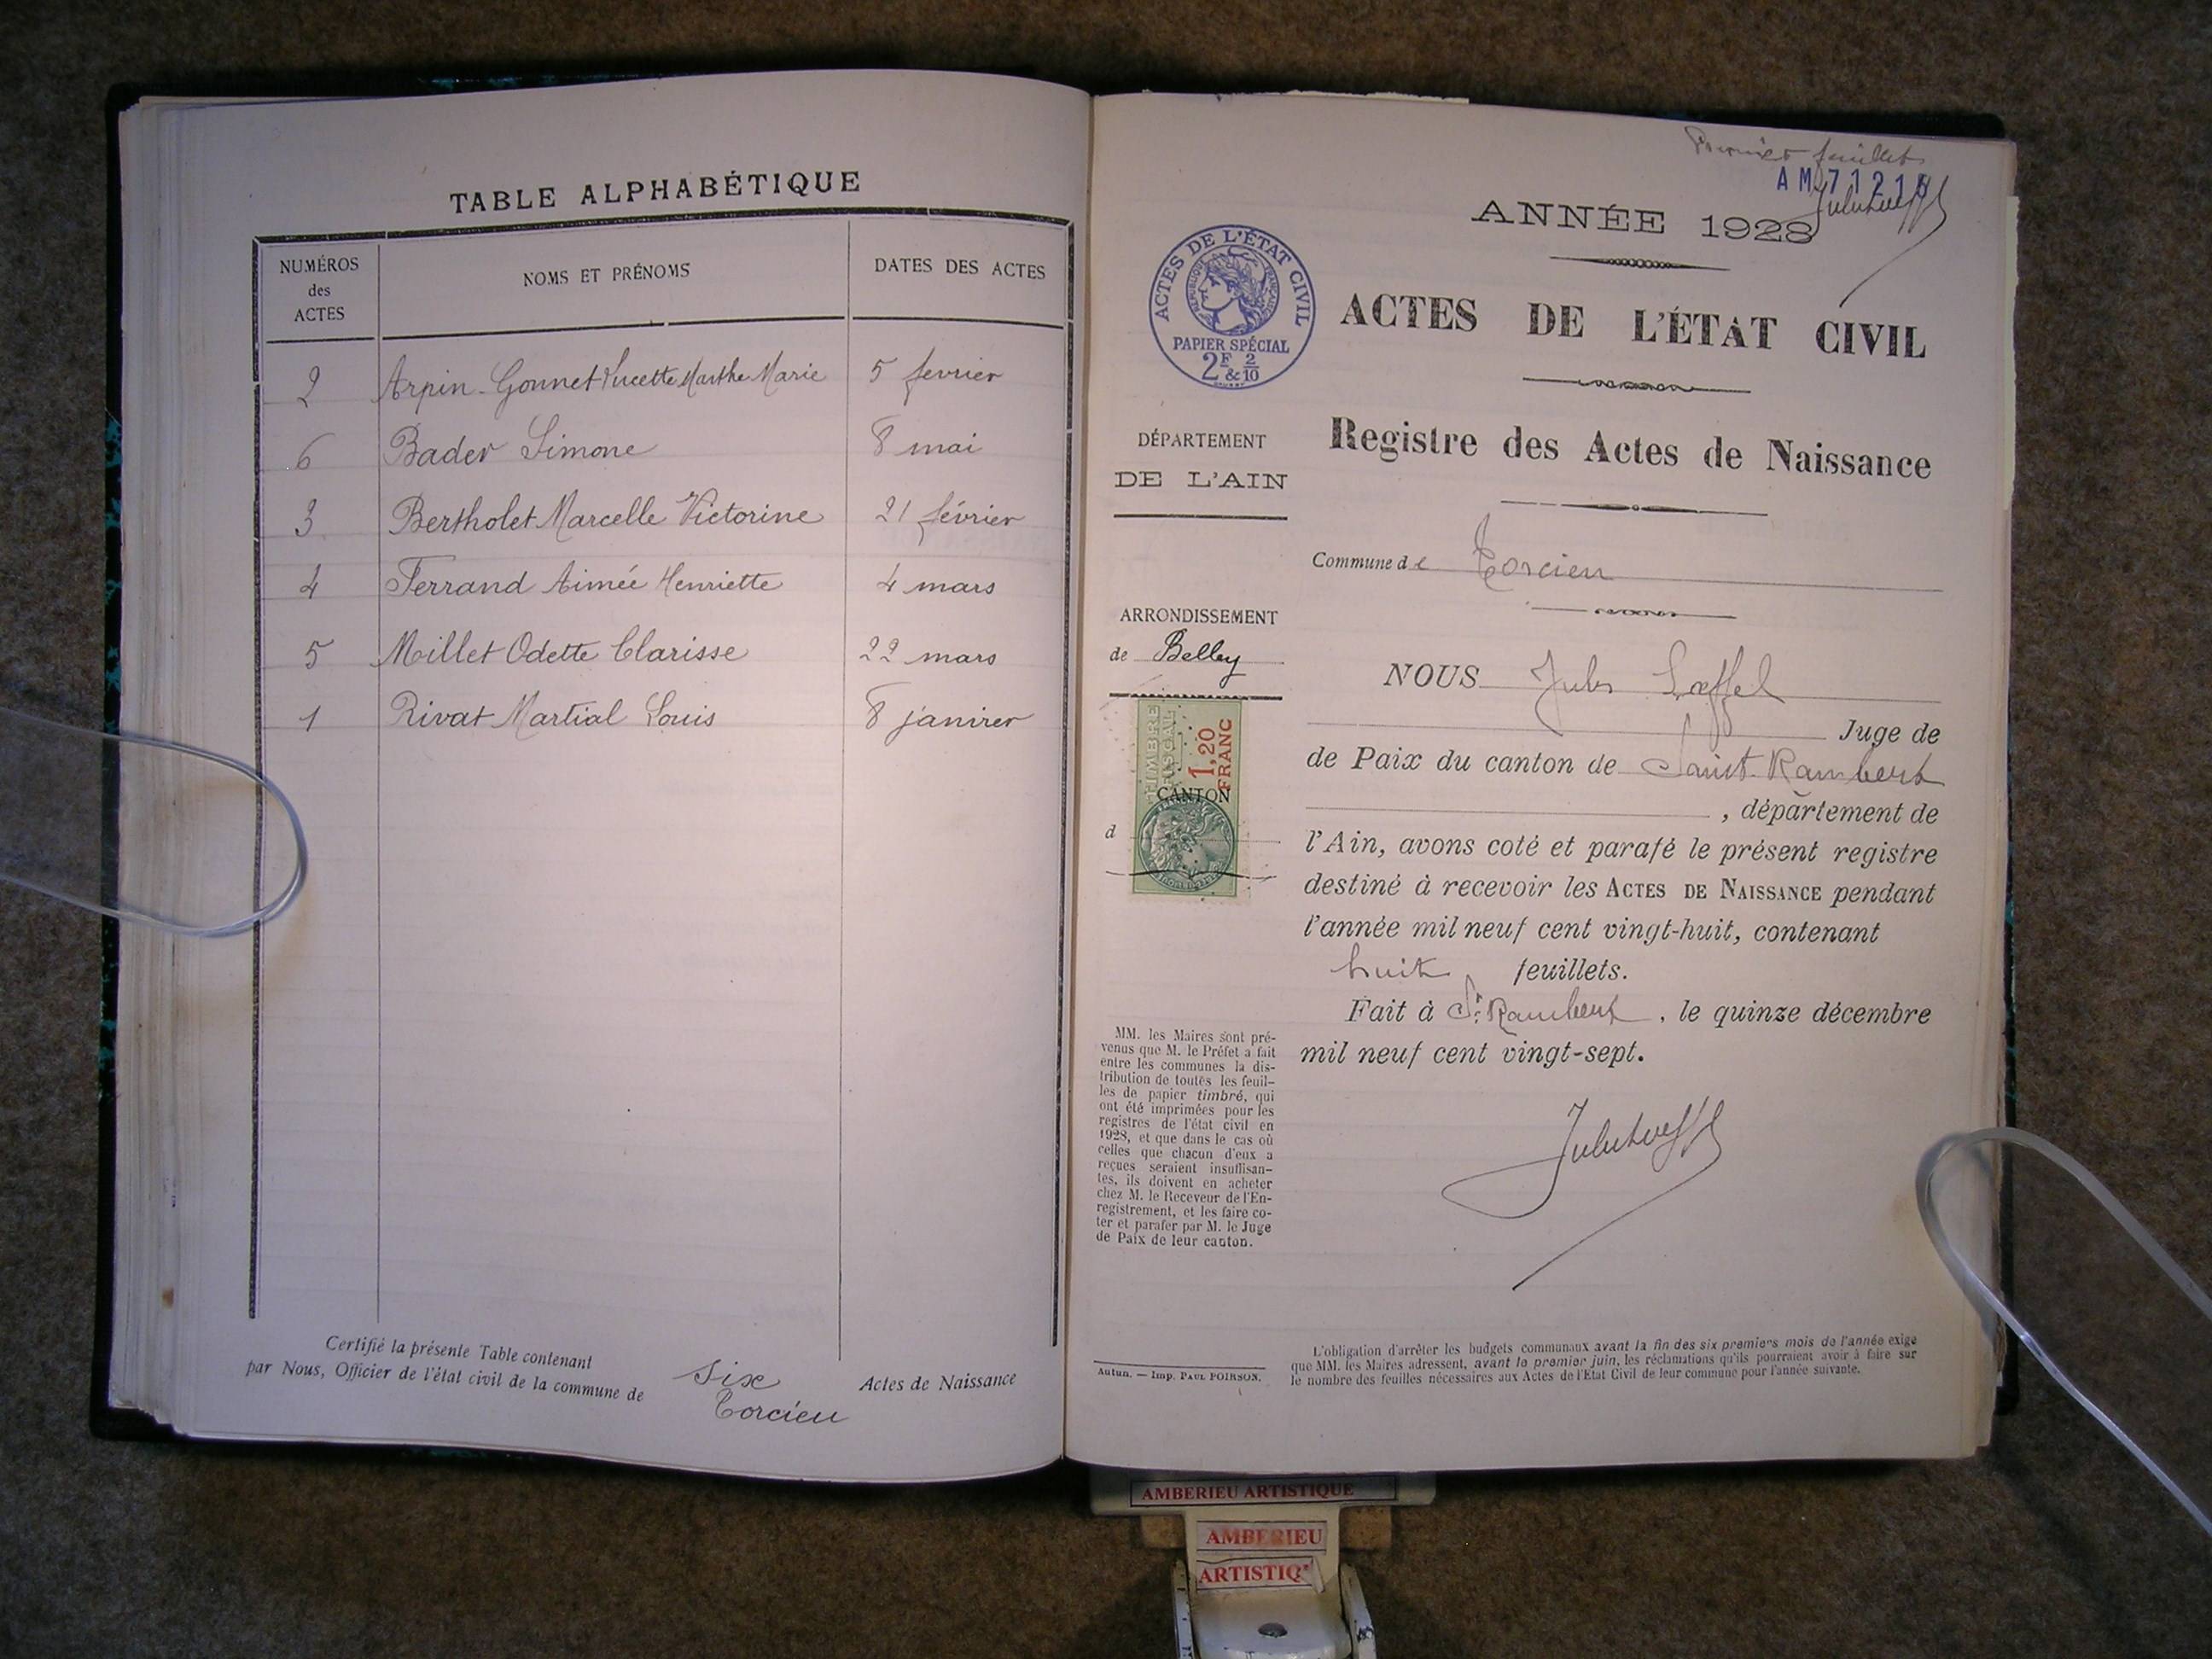 TABLE ALPHABÉTIQUE
NUMÉROS des ACTES
NOMS ET PRÉNOMS
DATES DES ACTES
2 Arpin-Gonnet Lucette Marthe Marie 5 fevrier
6 Bader Simone 8 mai
3 Bertholet Marcelle Victorine 21 février
4 Ferrand Aimée Henriette 4 mars
5 Millet Odette Clarisse 22 mars
1 Rivat Martial Louis 8 janirer
Certifié la présente Table contenant six Actes de Naissance
par Nous, Officier de l'état civil de la commune de Torcieu
Premier feuillet
AM 7121
ANNÉE 1928
ACTES DE L'ÉTAT CIVIL
RÉPUBLIQUE FRANÇAISE
PAPIER SPÉCIAL
2F & 2/10
ACTES DE L'ÉTAT CIVIL
Registre des Actes de Naissance
DÉPARTEMENT
DE L'AIN
Commune de Torcieu
ARRONDISSEMENT
de Belley
TIMBRE FISCAL
1,20 FRANC
CANTON
d
NOUS Jules Lœffel
Juge de
de Paix du canton de Saint-Rambert
, département de
l'Ain, avons coté et parafé le présent registre
destiné à recevoir les ACTES DE NAISSANCE pendant
l'année mil neuf cent vingt-huit, contenant
huit feuillets.
Fait à St Rambert, le quinze décembre
mil neuf cent vingt-sept.
MM. les Maires sont pré-
venus que M. le Préfet a fait
entre les communes la dis-
tribution de toutes les feuil-
les de papier timbré, qui
ont été imprimées pour les
registres de l'état civil en
1928, et que dans le cas où
celles que chacun d'eux a
reçues seraient insuffisan-
tes, ils doivent en acheter
chez M. le Receveur de l'En-
registrement, et les faire co-
ter et parafer par M. le Juge
de Paix de leur canton.
Autun. — Imp. PAUL POIRSON.
L'obligation d'arrêter les budgets communaux avant la fin des six premiers mois de l'année exige
que MM. les Maires adressent, avant le premier juin, les réclamations qu'ils pourraient avoir à faire sur
le nombre des feuilles nécessaires aux Actes de l'Etat Civil de leur commune pour l'année suivante.
AMBERIEU ARTISTIQUE
AMBERIEU
ARTISTIQ